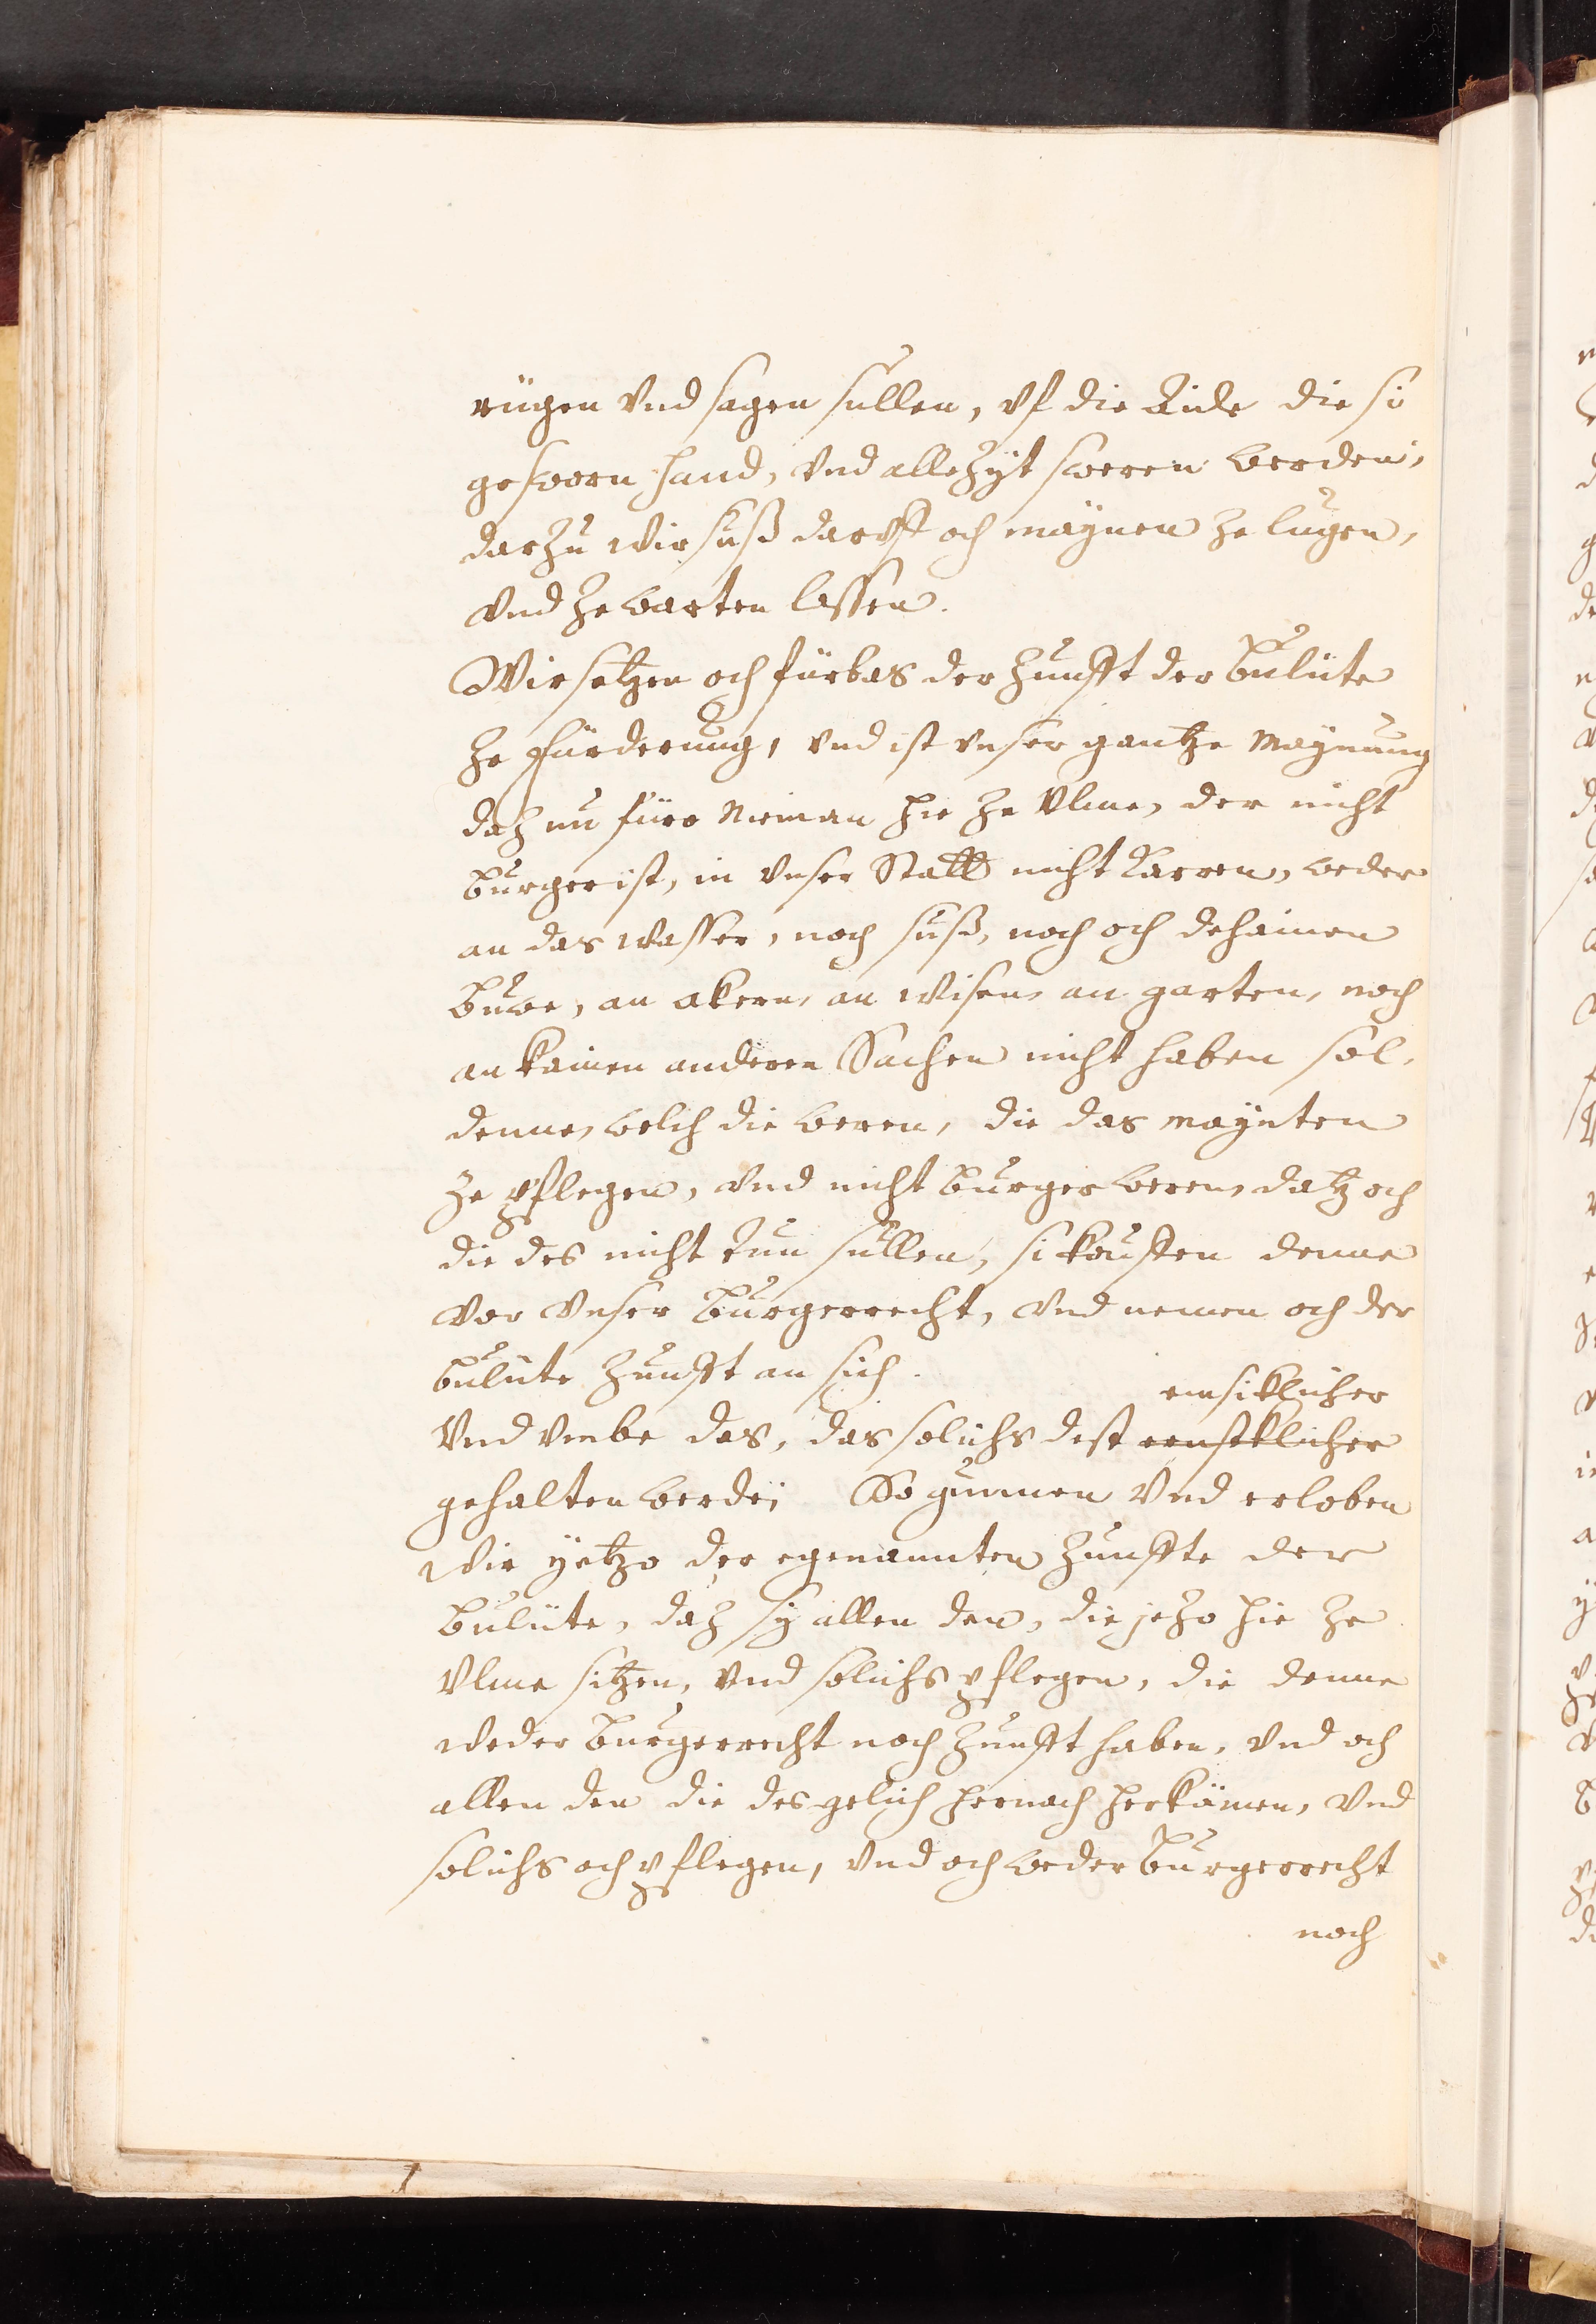 rügen vnd sagen süllen, vf die Aide die si
gesworn hand, vnd allezyt sweren werden,
darzu wir süß daruff och maynen ze lugen,
vnd ze warten lassen.
Wir setzen och fürbas der Zunfft der Bulüte
ze fürderung, vnd ist vnser gantze Maynung
daz nu füro Nieman hie ze Ulme, der nicht
burger ist, in vnser Statt nicht karren, weder
an das wasser, noch süß, noch och dehainen
buwe, an akern, an wisen, an garten, noch
an kainen anderen Sachen nicht haben söl,
denne, welch die weren, die das maynten
ze pflegen, vnd nicht burger weren, datz och
die des nicht tun süllen, si kouften denne
vor vnser Burgerrecht, vnd nemen och der
bulüte Zunfft an sich.
emsiklicher
Vnd vmbe das, das solichs dest ernstklicher
gehalten werde; So gunnen vnd erloben
wir yetzo der egenannten Zunffte der
Bulüte, daz sy allen den, die jezo hie ze
Vlme sitzen, vnd sölichs pflegen, die denne
weder burgerrecht noch Zunfft haben, vnd och
allen den die des gelich hernach herkämen, vnd
solichs och pflegen, vnd och weder burgerrecht
noch